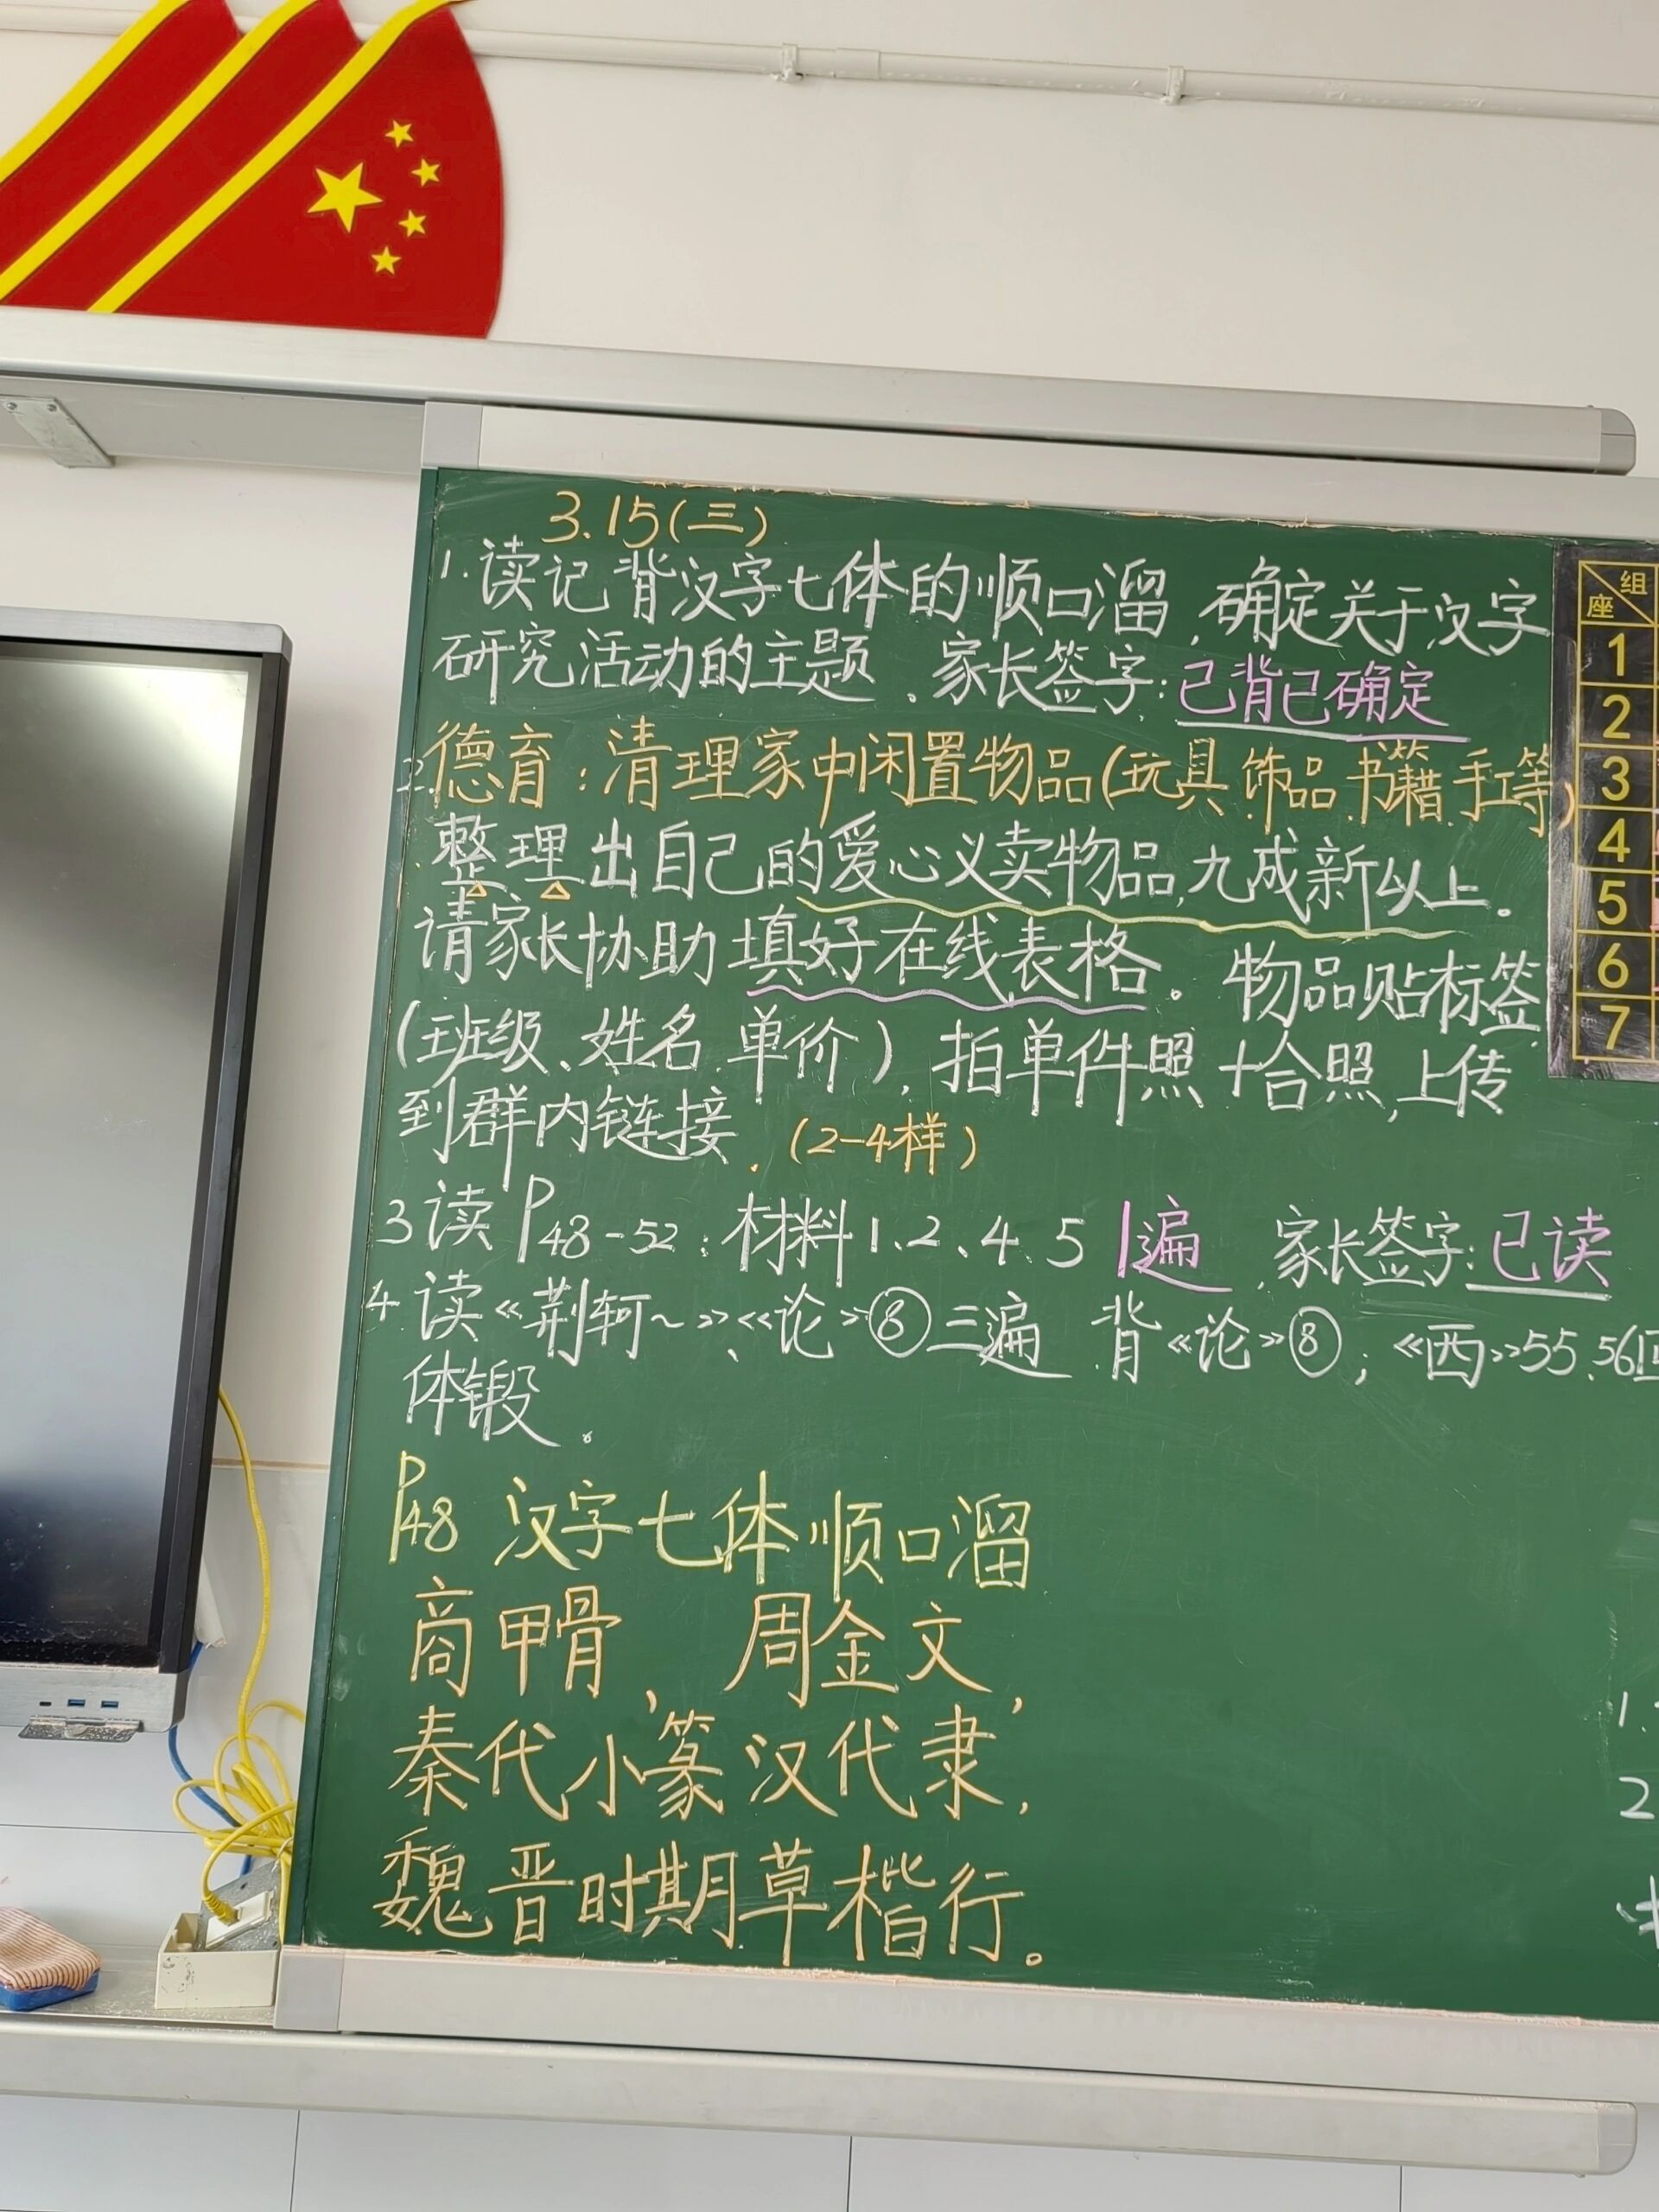 3.15(三)
1.读记背汉字七体的顺口溜,确定关于汉字
研究活动的主题.家长签字:已背已确定
2.德育:清理家中闲置物品(玩具.饰品.书籍.手工等)
整理出自己的爱心义卖物品,九成新以上。
请家长协助填好在线表格。物品贴标签
(班级、姓名.单价),拍单件照+合照,上传
到群内链接.(2-4样)
3读P48-52:材料1、2、4、5 1遍.家长签字:已读
4.读《荆轲~》、《论》⑧三遍.背《论》⑧;《西》55、56回
体锻。
P48 汉字七体顺口溜
商甲骨、周金文,
秦代小篆汉代隶,
魏晋时期草楷行。
组
座
1
2
3
4
5
6
7
1.
2